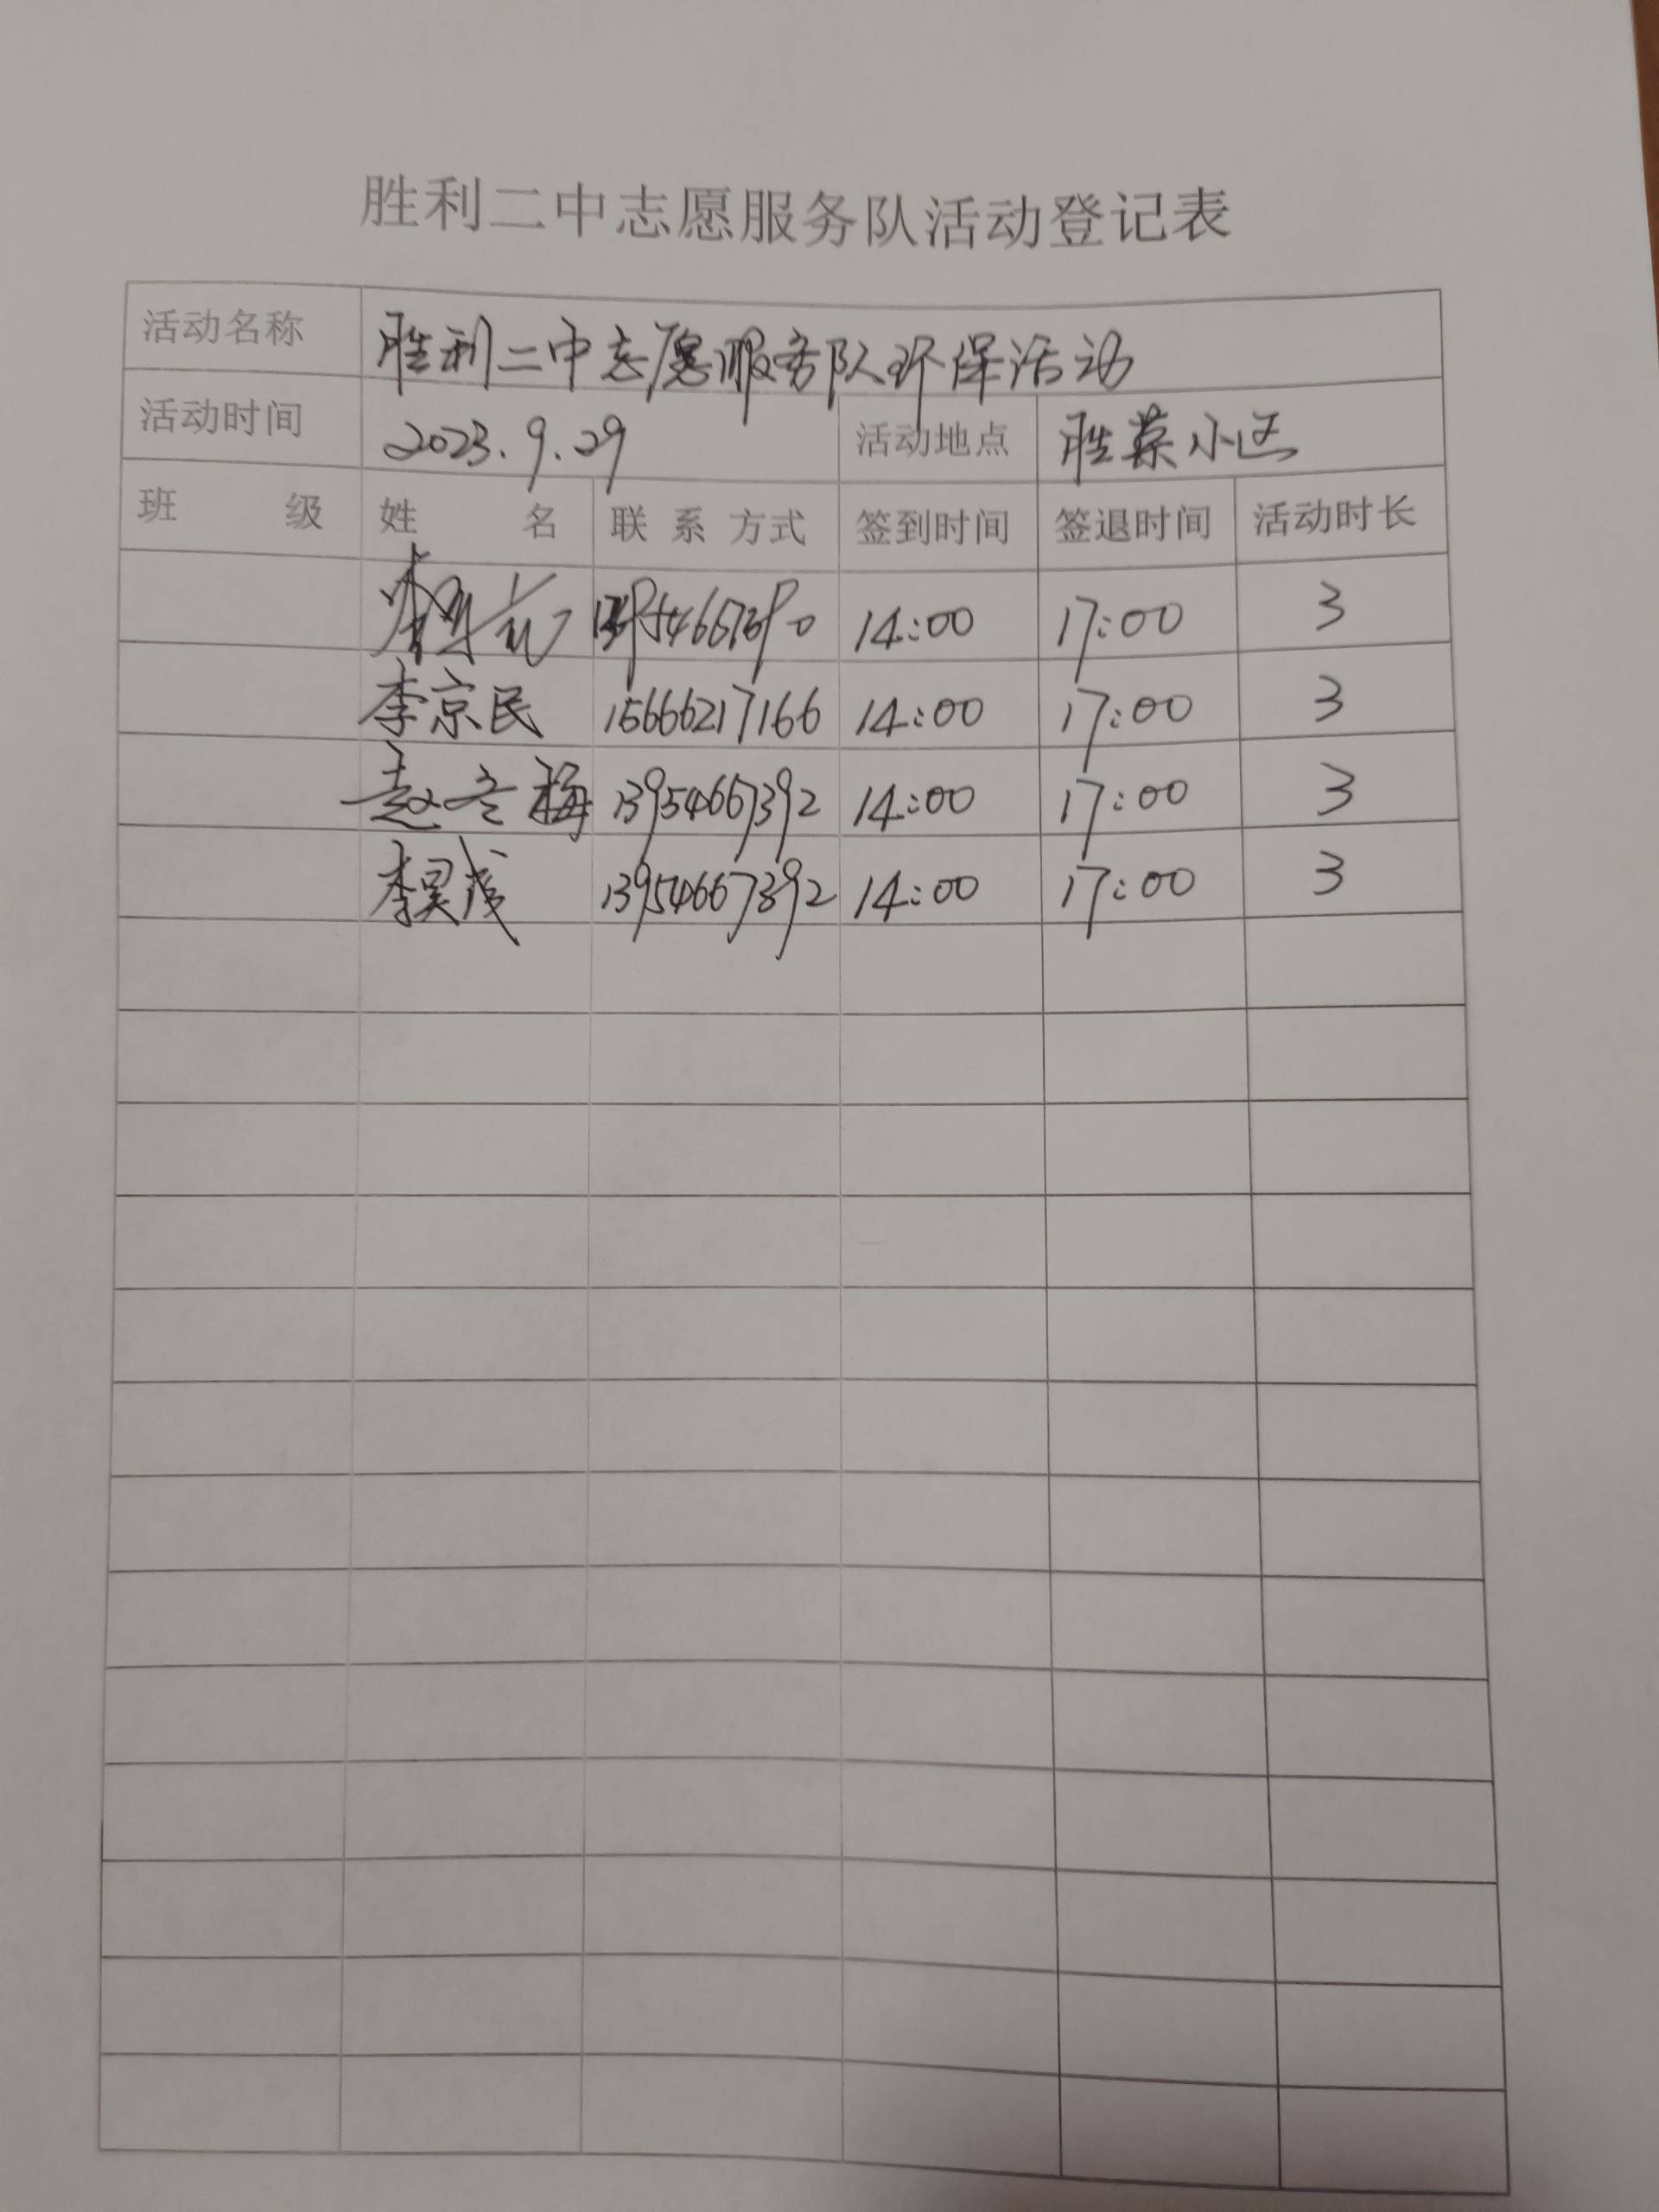 胜利二中志愿服务队活动登记表
活动名称 胜利二中志愿服务队环保活动
活动时间 2023.9.29 活动地点 胜葇小区
班级 姓名 联系方式 签到时间 签退时间 活动时长
14:00 17:00 3
李京民 15666217166 14:00 17:00 3
赵冬梅 13954667392 14:00 17:00 3
李昊 13954667392 14:00 17:00 3